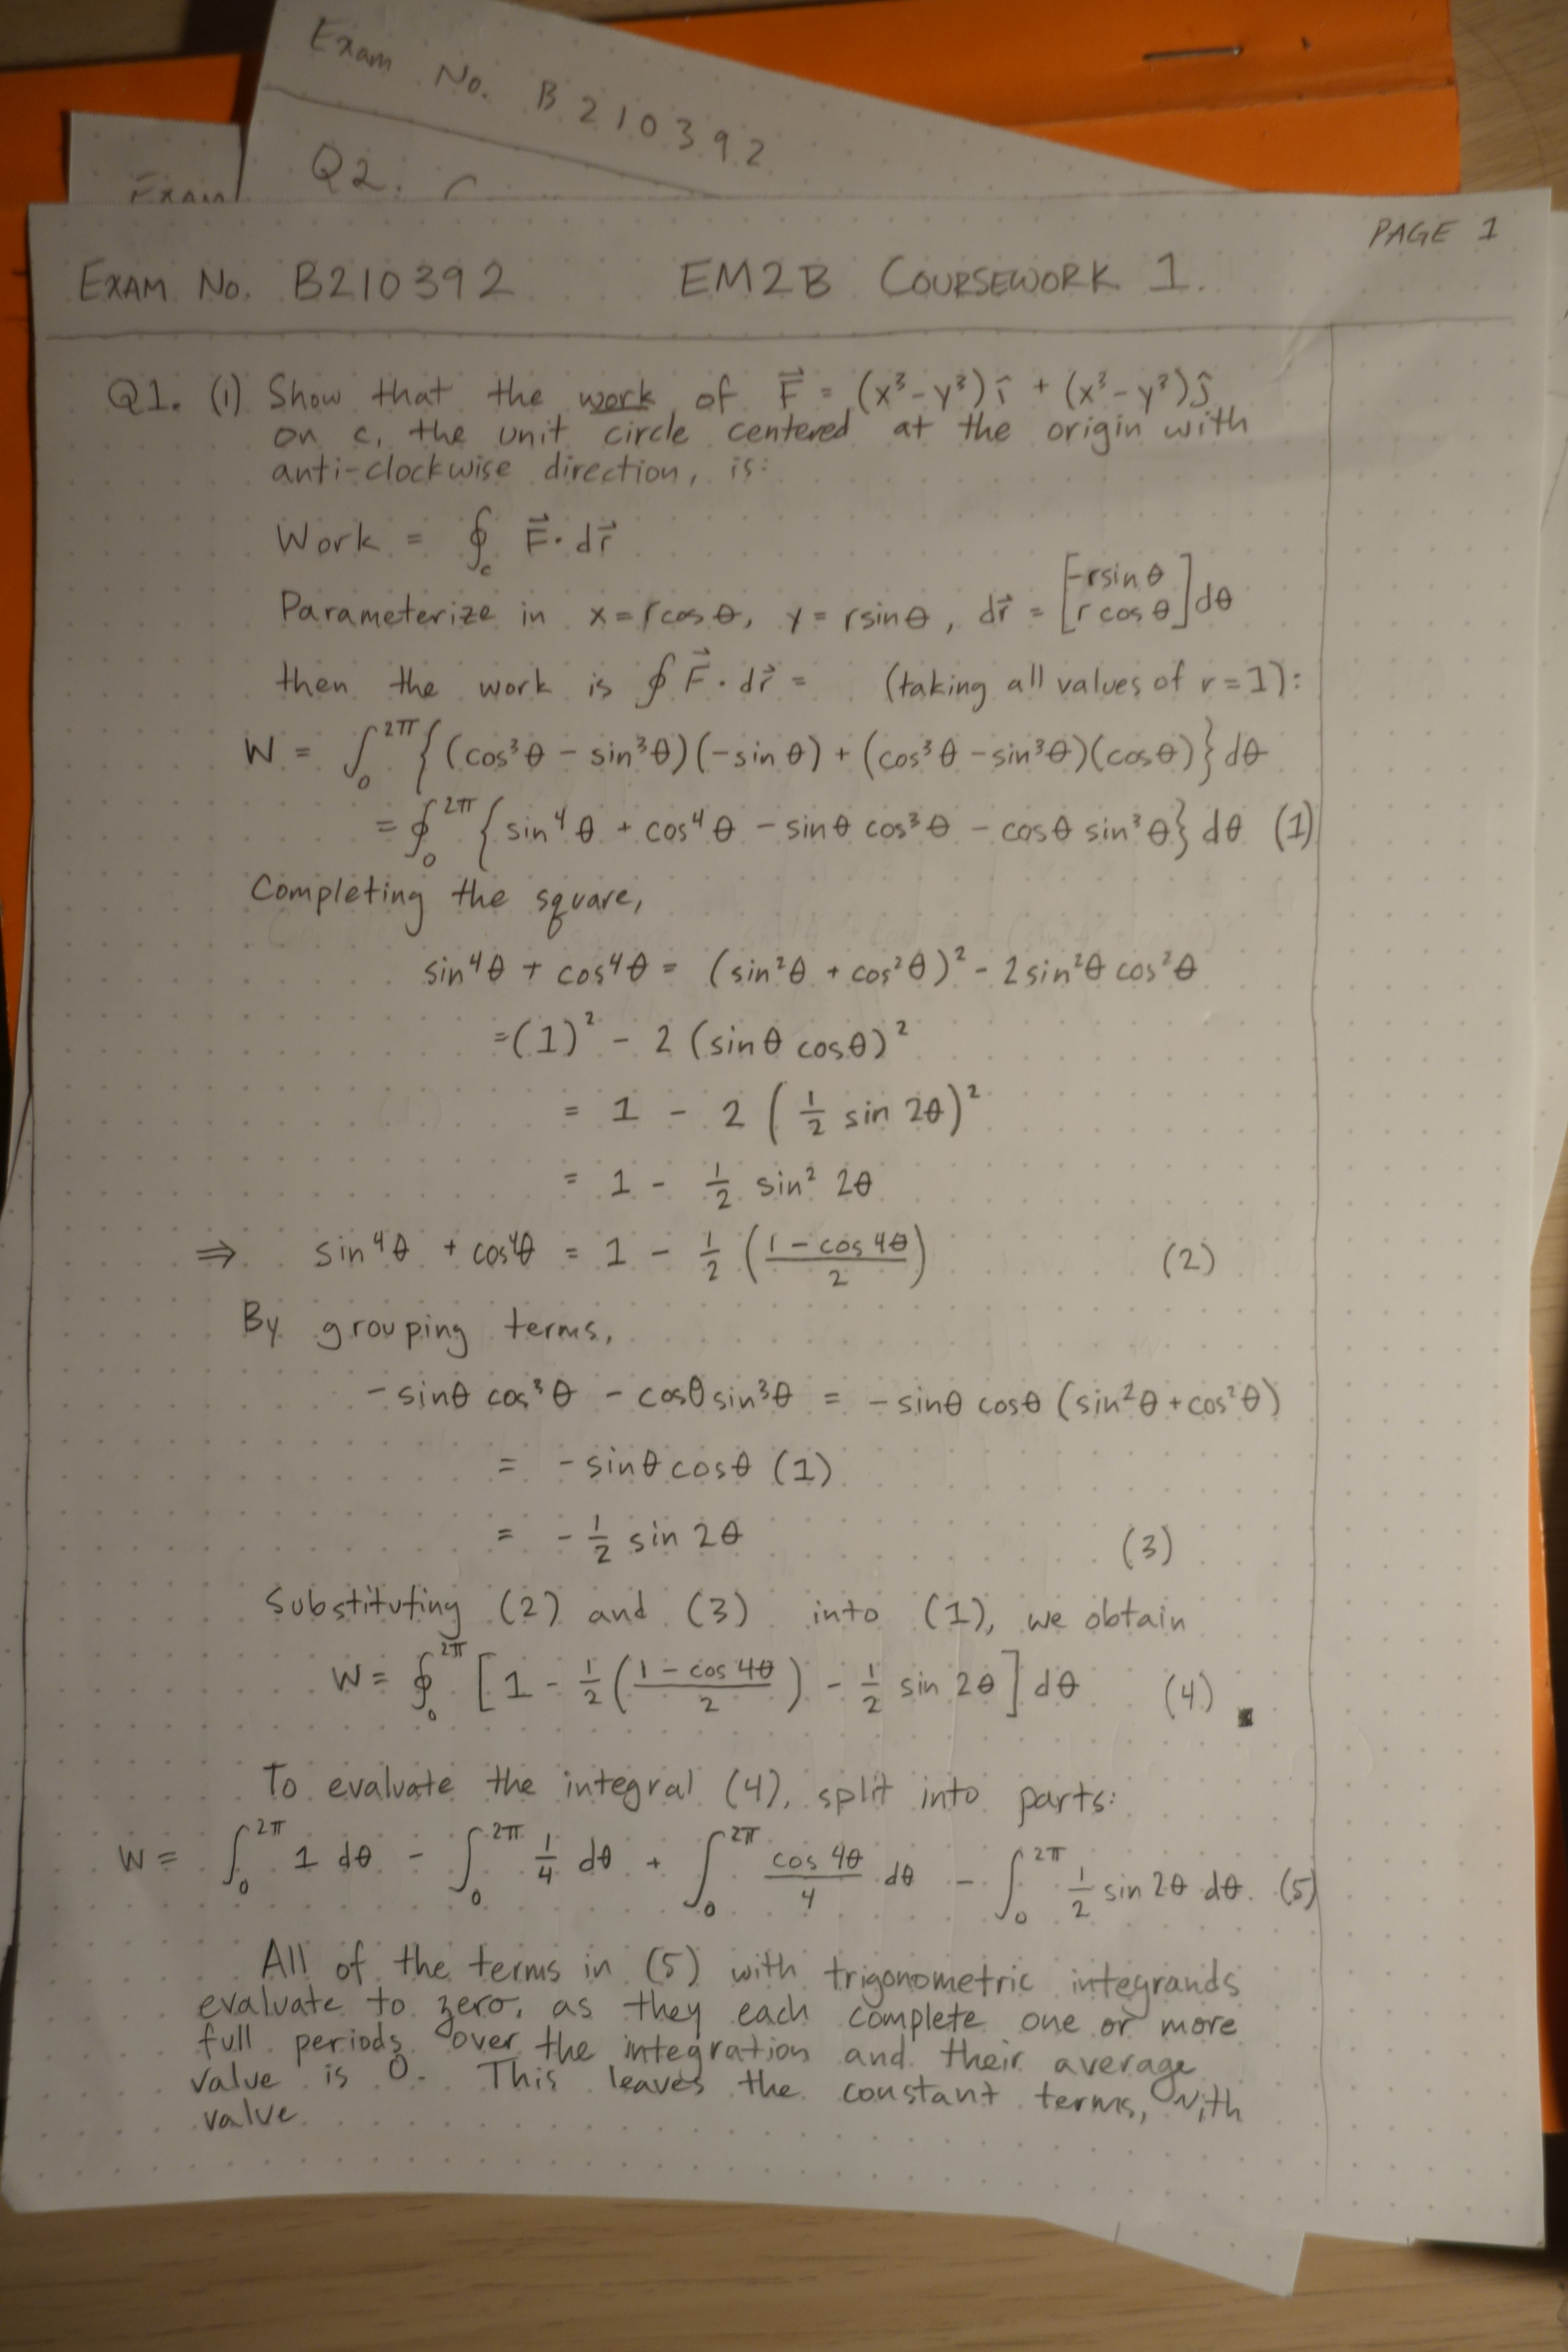 Exam No. B210392
Q2.
Exam
PAGE 1
EXAM No. B210392 EM2B COURSEWORK 1.
Q1. (i) Show that the work of F⃗ = (x³-y³)î + (x³-y³)ĵ
on c, the unit circle centered at the origin with
anti-clockwise direction, is:
Work = ∮_c F⃗·dr⃗
Parameterize in x = rcosθ, y = rsinθ, dr⃗ = [-rsinθ r cosθ]dθ
then the work is ∮F⃗·dr⃗ = (taking all values of r=1):
W = ∫₀^2π {(cos³θ - sin³θ)(-sinθ) + (cos³θ - sin³θ)(cosθ)}dθ
= ∮₀^2π {sin⁴θ + cos⁴θ - sinθ cos³θ - cosθ sin³θ} dθ (1)
Completing the square,
sin⁴θ + cos⁴θ = (sin²θ + cos²θ)² - 2sin²θ cos²θ
= (1)² - 2 (sinθ cosθ)²
= 1 - 2 (1/2 sin 2θ)²
= 1 - 1/2 sin² 2θ
⇒ sin⁴θ + cos⁴θ = 1 - 1/2 ((1 - cos 4θ)/2) (2)
By grouping terms,
-sinθ cos³θ - cosθ sin³θ = -sinθ cosθ (sin²θ + cos²θ)
= -sinθ cosθ (1)
= -1/2 sin 2θ (3)
Substituting (2) and (3) into (1), we obtain
W = ∮₀^2π [1 - 1/2 ((1 - cos 4θ)/2) - 1/2 sin 2θ] dθ (4)
To evaluate the integral (4), split into parts:
W = ∫₀^2π 1 dθ - ∫₀^2π 1/4 dθ + ∫₀^2π (cos 4θ)/4 dθ - ∫₀^2π 1/2 sin 2θ dθ. (5)
All of the terms in (5) with trigonometric integrands
evaluate to zero, as they each complete one or more
full periods over the integration and their average
value is 0. This leaves the constant terms, with
value